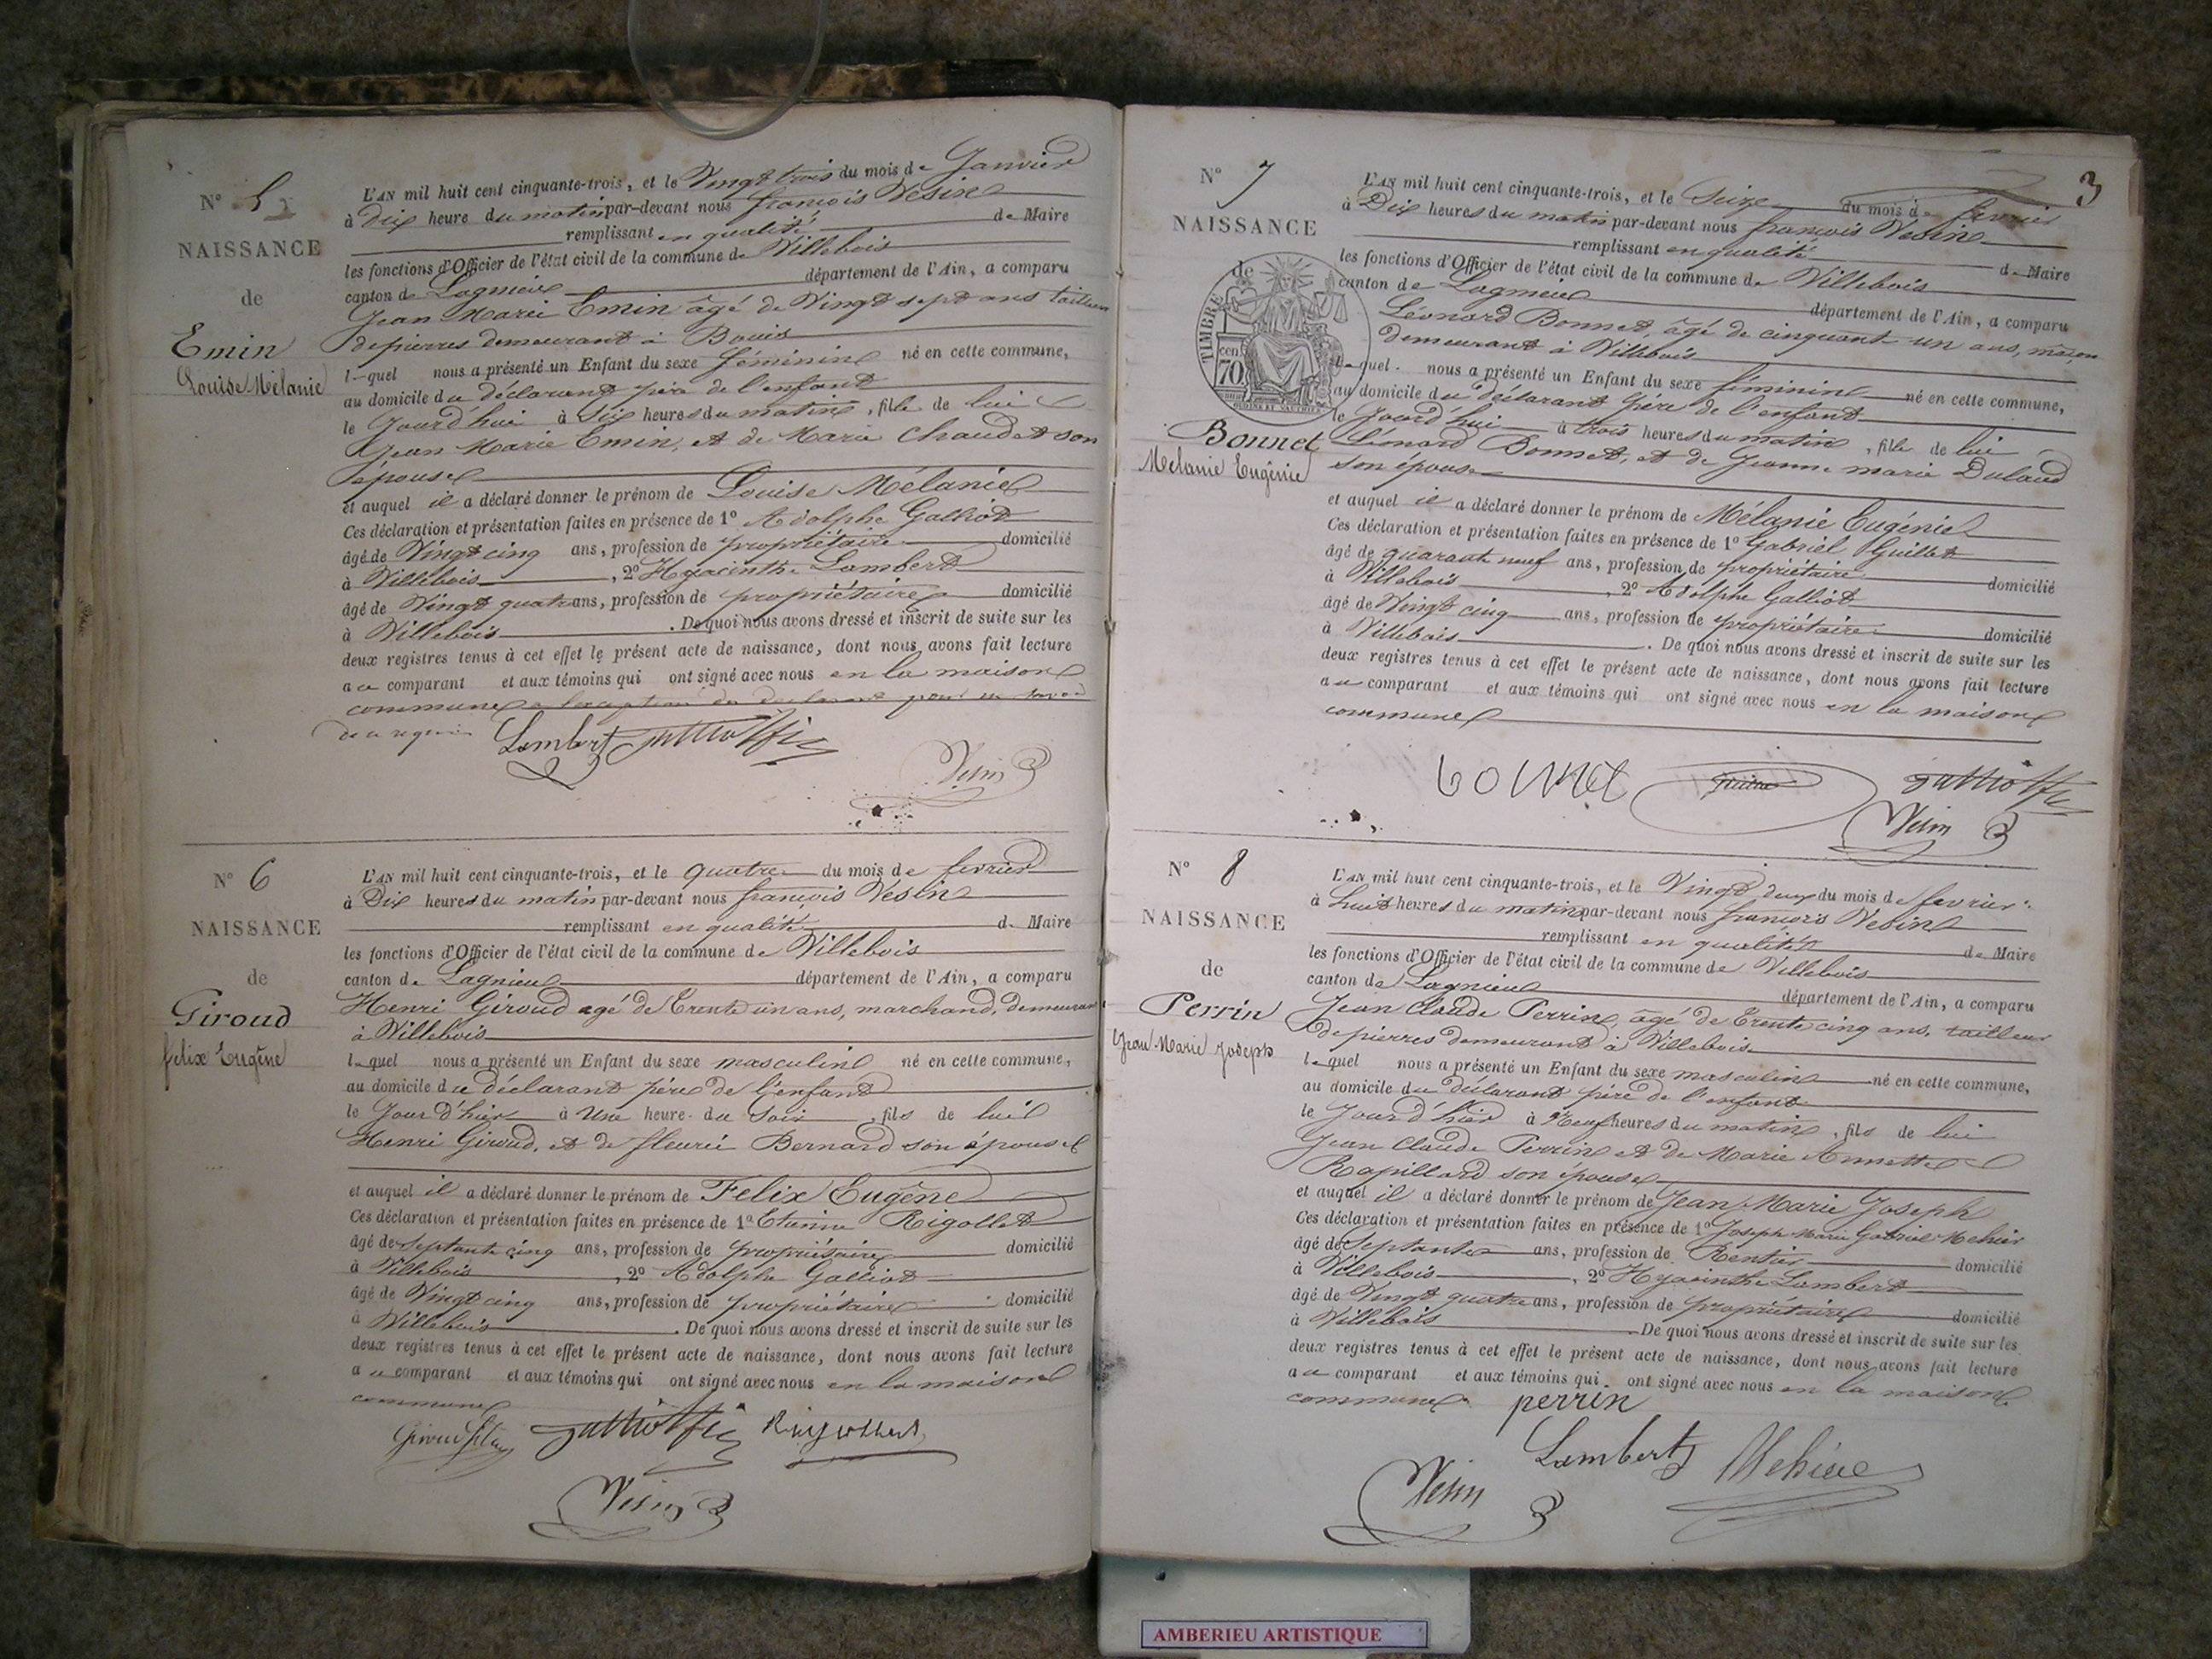 N° 5
NAISSANCE
de
Emin
Louise Mélanie
L'AN mil huit cent cinquante-trois, et le Vingt trois du mois de Janvier
à Dix heure du matin par-devant nous françois Vesin
remplissant en qualité de Maire
les fonctions d'Officier de l'état civil de la commune de Villebois
canton de Lagnieu département de l'Ain, a comparu
Jean Marie Emin âgé de Vingt sept ans tailleur
de pierres demeurant à Bouis
lequel nous a présenté un Enfant du sexe féminin né en cette commune,
au domicile du déclarant père de l'enfant
le Jourd'hui à Six heures du matin, fille de lui
Jean Marie Emin, et de Marie Chaudet son
épouse
et auquel il a déclaré donner le prénom de Louise Mélanie
Ces déclaration et présentation faites en présence de 1° Adolphe Galliot
âgé de Vingt cinq ans, profession de propriétaire domicilié
à Villebois, 2° Hyacinthe Lambert
âgé de Vingt quatre ans, profession de propriétaire domicilié
à Villebois. De quoi nous avons dressé et inscrit de suite sur les
deux registres tenus à cet effet le présent acte de naissance, dont nous avons fait lecture
au comparant et aux témoins qui ont signé avec nous en la maison
commune a l'exception du déclarant pour ne savoir
de ce requis
Lambert Galliot fils
Vesin
N° 6
NAISSANCE
de
Giroud
felix Eugène
L'AN mil huit cent cinquante-trois, et le quatre du mois de fevrier
à Dix heures du matin par-devant nous françois Vesin
remplissant en qualité de Maire
les fonctions d'Officier de l'état civil de la commune de Villebois
canton de Lagnieu département de l'Ain, a comparu
Henri Giroud agé de Trente un ans, marchand, demeurant
à Villebois
lequel nous a présenté un Enfant du sexe masculin né en cette commune,
au domicile du déclarant père de l'enfant
le Jour d'hier à Une heure du Soir, fils de lui
Henri Giroud, et de fleurie Bernard son épouse
et auquel il a déclaré donner le prénom de Felix Eugène
Ces déclaration et présentation faites en présence de 1° Etienne Rigollet
âgé de Septante cinq ans, profession de propriétaire domicilié
à Villebois, 2° Adolphe Galliot
âgé de Vingt cinq ans, profession de propriétaire domicilié
à Villebois. De quoi nous avons dressé et inscrit de suite sur les
deux registres tenus à cet effet le présent acte de naissance, dont nous avons fait lecture
au comparant et aux témoins qui ont signé avec nous en la maison
commune
Giroud Galliot fils Rigollet
Vesin
3
N° 7
NAISSANCE
de
TIMBRE
70 cent.
Bonnet
Melanie Eugénie
L'AN mil huit cent cinquante-trois, et le Seize du mois de fevrier
à Dix heures du matin par-devant nous françois Vesin
remplissant en qualité de Maire
les fonctions d'Officier de l'état civil de la commune de Villebois
canton de Lagnieu département de l'Ain, a comparu
Léonard Bonnet, âgé de cinquant un ans, maçon
demeurant à Villebois
lequel nous a présenté un Enfant du sexe féminin né en cette commune,
au domicile du déclarant père de l'enfant
le Jourd'hui à trois heures du matin, fille de lui
Léonard Bonnet, et de Jeanne marie Dulaud
son épouse
et auquel il a déclaré donner le prénom de Mélanie Eugénie
Ces déclaration et présentation faites en présence de 1° Gabriel Guillet
âgé de quarante neuf ans, profession de propriétaire domicilié
à Villebois, 2° Adolphe Galliot
âgé de Vingt cinq ans, profession de propriétaire domicilié
à Villebois. De quoi nous avons dressé et inscrit de suite sur les
deux registres tenus à cet effet le présent acte de naissance, dont nous avons fait lecture
au comparant et aux témoins qui ont signé avec nous en la maison
commune
bonnet Galliot fils
Vesin
N° 8
NAISSANCE
de
Perrin
Jean Marie Joseph
L'AN mil huit cent cinquante-trois, et le Vingt deux du mois de fevrier
à huit heures du matin par-devant nous françois Vesin
remplissant en qualité de Maire
les fonctions d'Officier de l'état civil de la commune de Villebois
canton de Lagnieu département de l'Ain, a comparu
Jean Claude Perrin, âgé de Trente cinq ans, tailleur
de pierres demeurant à Villebois
lequel nous a présenté un Enfant du sexe masculin né en cette commune,
au domicile du déclarant père de l'enfant
le Jour d'hier à Neuf heures du matin, fils de lui
Jean Claude Perrin et de Marie Annette
Rapillard son épouse
et auquel il a déclaré donner le prénom de Jean Marie Joseph
Ces déclaration et présentation faites en présence de 1° Joseph Marie Gabriel Mehier
âgé de Septante ans, profession de Rentier domicilié
à Villebois, 2° Hyacinthe Lambert
âgé de Vingt quatre ans, profession de propriétaire domicilié
à Villebois. De quoi nous avons dressé et inscrit de suite sur les
deux registres tenus à cet effet le présent acte de naissance, dont nous avons fait lecture
au comparant et aux témoins qui ont signé avec nous en la maison
commune perrin
Lambert Mehier
Vesin
AMBERIEU ARTISTIQUE